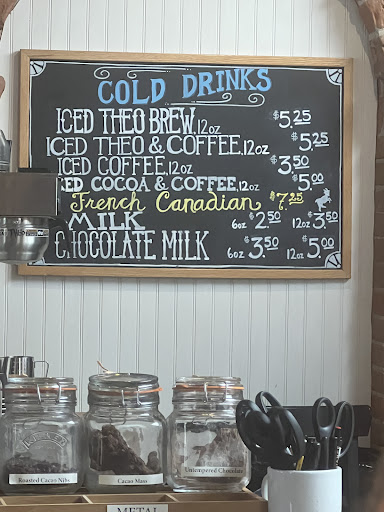 COLD DRINKS
ICED THEO BREW, 12oz $5.25
ICED THEO & COFFEE, 12oz $5.25
ICED COFFEE, 12oz $3.50
ICED COCOA & COFFEE, 12oz $5.00
French Canadian $7.25
MILK 6oz $2.50 12oz $3.50
CHOCOLATE MILK 6oz $3.50 12oz $5.00
Roasted Cacao Nibs
Cacao Mass
Untempered Chocolate
METAL